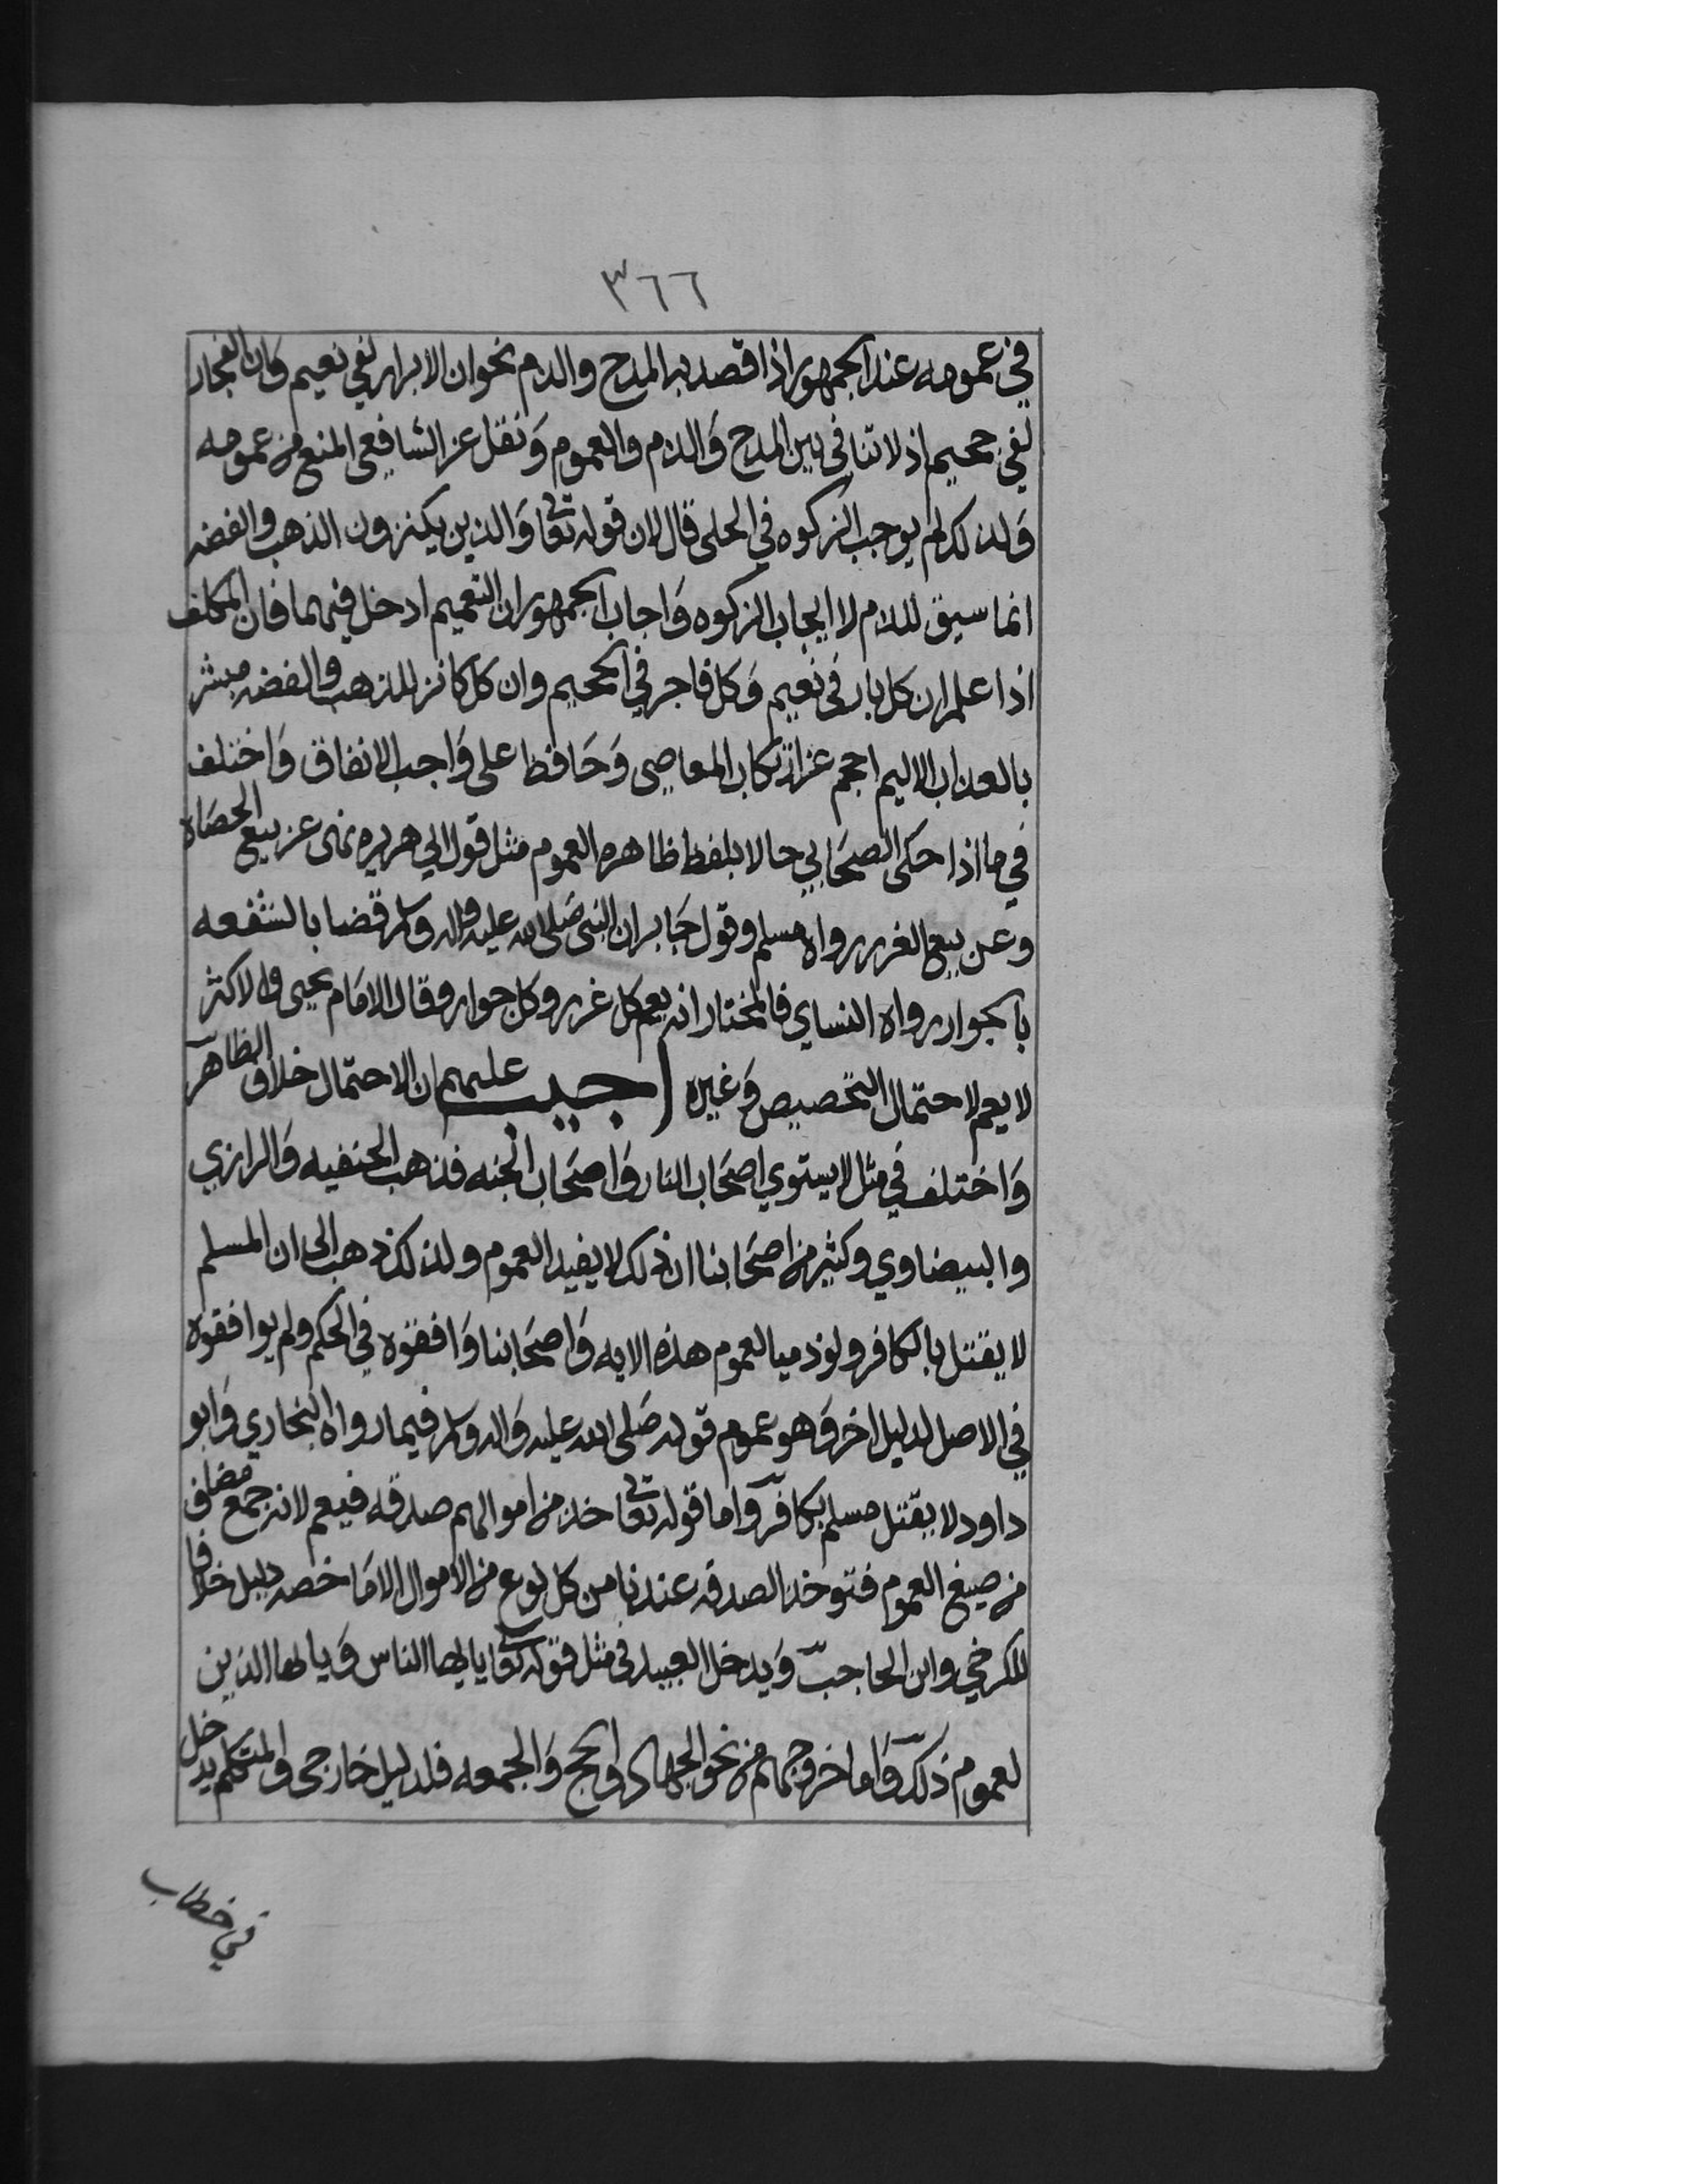 ٣٦٦
في عمومه عند الجمهور اذا قصد به المدح والذم نحو ان الابرار لفي نعيم وَان الفجار
لفي جحيم اذ لا تنافي بين المدح وَالذم والعموم وَنقل عن الشافعي المنع من عمومه
وَلذلك لم يوجب الزكوه في الحلي قال لان قوله تعا وَالذين يكنزون الذهب والفضه
انما سيق للذم لا ايجاب الزكوه وَاجاب الجمهور ان التعميم ادخل فيهما فان المكلف
اذا علم ان كل بار في نعيم وَكل فاجر في الجحيم وان كل كانز للذهب والفضه مبشر
بالعذاب الاليم احجم عن ارتكاب المعاصي وَحَافظ على وَاجب الانفاق وَاختلف
في ما اذا حكى الصحَابي حالا بلفظ ظاهره العموم مثل قول ابي هريره نهى عن بيع الحصَاه
وعن بيع الغرر رواه مسلم وقول جَابر ان النبي صَلى الله عليه واله وسلم قضا بالشفعه
بالجوار رواه النساي فالمختار انه يعم كل غرر وكل جوار وقال الامَام يحيى والاكثر
لا يعم لاحتمال التخصيص وَغيره اجيب عليهم ان الاحتمال خلاف الظاهر
وَاختلف في مثل لا يستوي اصحَاب النار وَاصحَاب الجنه فذهب الحنفيه وَالرازي
والبيضاوي وكثير من اصحَابنا ان ذلك لا يفيد العموم ولذلك ذهب الى ان المسلم
لا يقتل بالكافر ولو ذميا لعموم هذه الايه وَاصحَابنا وَافقوه في الحكم ولم يوافقوه
في الاصل لدليل اخر وَهو عموم قوله صَلى الله عليه وَاله وسلم فيما رواه البخاري وَابو
داود لا يقتل مسلم بكافر وَاما قوله تعا خذ من اموالهم صدقه فيعم لانه جمع مضاف
من صيغ العموم فتوخذ الصدقه عندنا من كل نوع من الاموال الا مَا خصه دليل خلافا
للكرخي وابن الحاجب وَيدخل العبيد في مثل قوله تعا يا ايها الناس وَيا ايها الذين
لعموم ذلك وَاما خروجهم من نحو الجهاد والحج وَالجمعه فلدليل خارجي والمتكلم يدخل
في خطاب